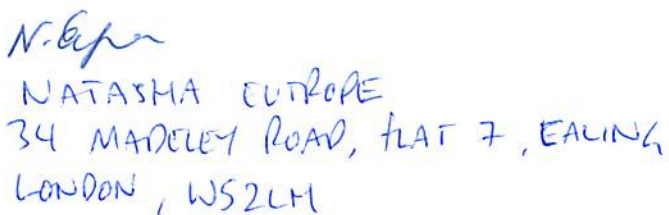 NATASHA EUTROPE
34 MADELEY ROAD, FLAT 7, EALING
LONDON, W52LH